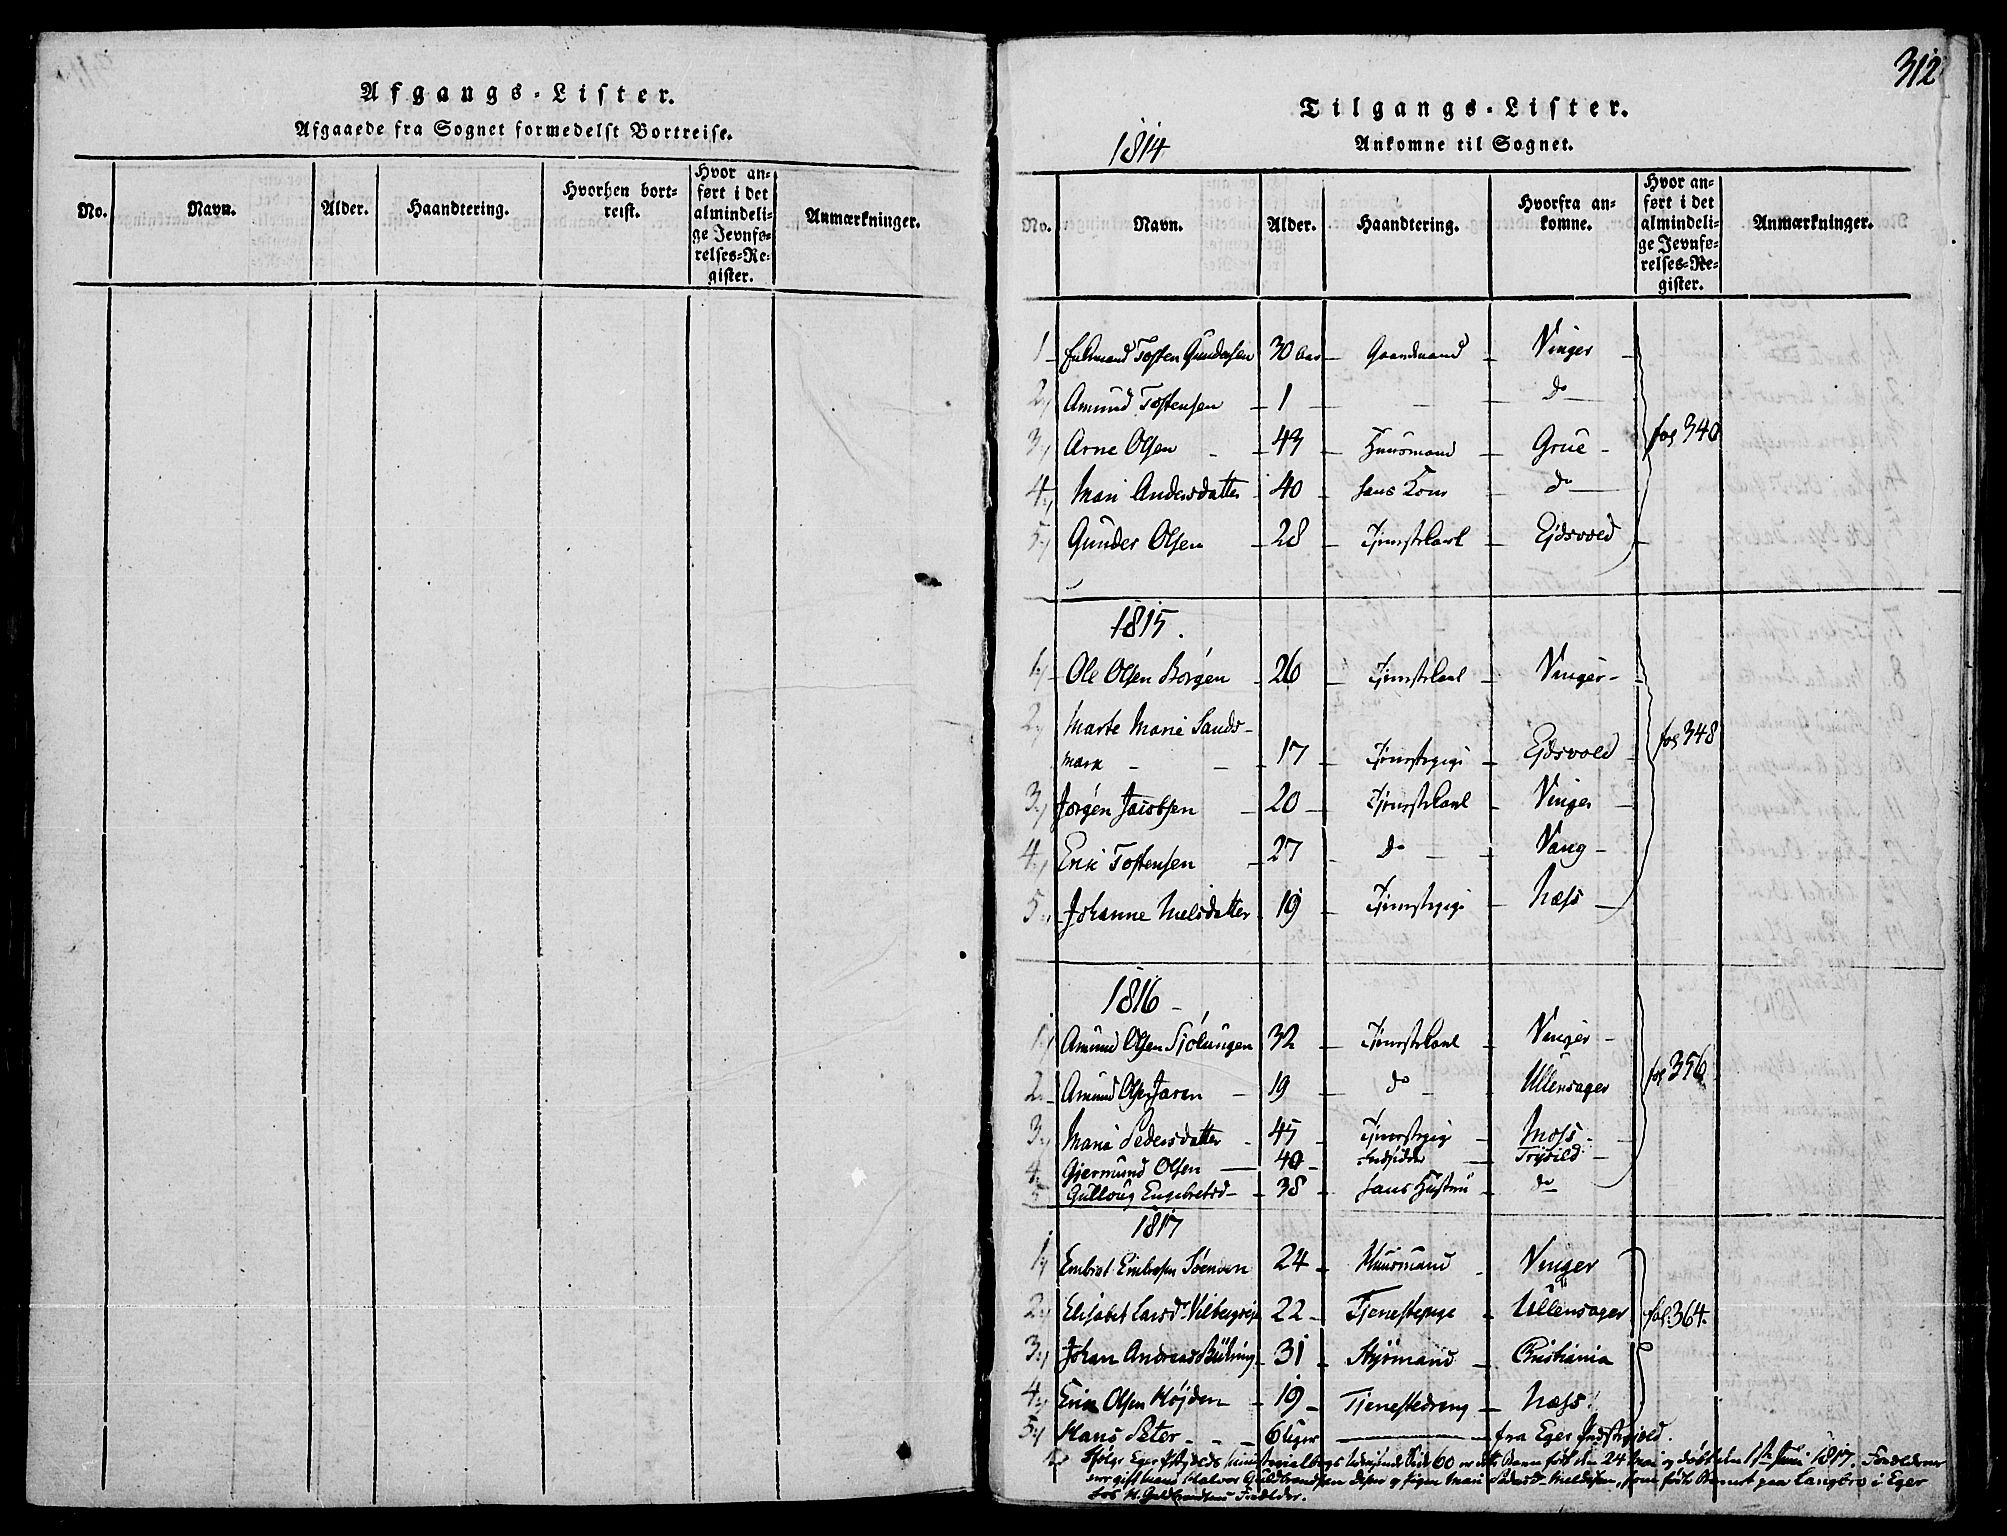 Afgangs-Lister.
Afgaaede fra Sognet formedelst Bortreise.
No. Navn. Alder. Haandtering. Hvorhen bortreist. Hvor anført i det almindelige Jevnførelses-Register. Anmærkninger.
312
Tilgangs-Lister.
Ankomne til Sognet.
1814
No. Navn. Alder. Haandtering. Hvorfra ankomne. Hvor anført i det almindelige Jevnførelses-Register. Anmærkninger.
1 Tosten Gundersen 30 Aar Gaardmand Vinger
2 Amund Tostensen 1 do
3 Arne Olsen 43 Huusmand Grue fol 340
4 Mari Andersdatter 40 hans Kone do
5 Gunder Olsen 28 Tjenstkarl Ejdsvold
1815.
1 Ole Olsen Børgen 26 Tjenstkarl Vinger
2 Marte Marie Sands-
mark 17 Tjenstepige Ejdsvold fol 348
3 Jørgen Jacobsen 20 Tjenstkarl Vinger
4 Erik Tostensen 27 do Vang
5 Johanne Nielsdatter 19 Tjenstepige Næss
1816
1 Amund Olsen Sjølungen 32 Tjenstkarl Vinger
2 Amund Olsen Jaren 19 do Ullensager fol 356
3 Mari Pedersdatter 45 Tjenstepige Moss
4 Gjermund Olsen 40 Indsidder Trysild
5 Gulloug Engebretsd 38 hans Hustru do
1817
1 Embret Embretsen 24 Huusmand Vinger
2 Elisabet Larsdr 22 Tjenestepige Ullensager fol. 364.
3 Johan Andreas Bülring 31 Styrmand Christiania
4 Erik Olsen Højden 19 Tjenestedreng Næss.
5 Hans Peter 6 Uger fra Eger Præstegjeld.
Ifølge Eger Side 60 er dette Barn født den 24 Mai og døbt den 1ste Juni 1817. Forældrene
Halvor Guldbrandsen og Pigen Mari som fødte Barnet paa Langbro i Eger
hos H. Guldbrandsens Forældre.